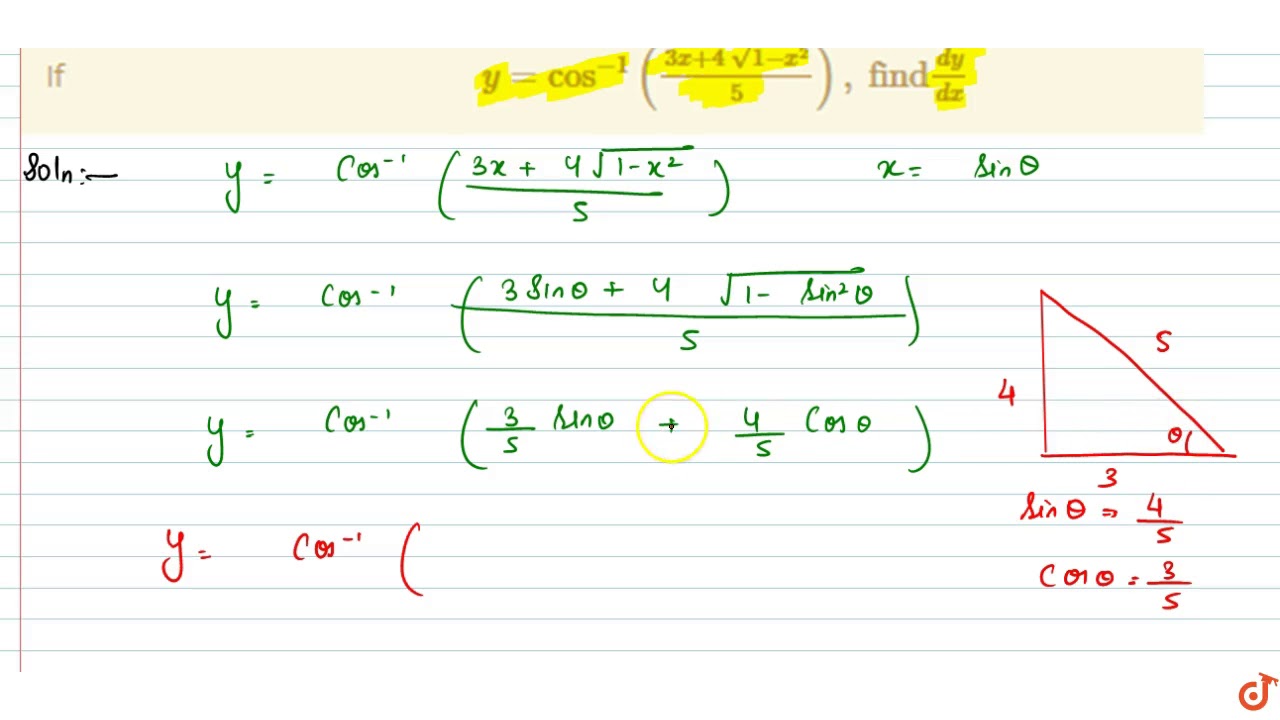 If y = cos⁻¹ ( (3x+4√1−x²)/5 ) , find dy/dx
Soln :— y = Cos⁻¹ ( (3x + 4√1-x²)/5 ) x = Sinθ
y = Cos⁻¹ ( (3 Sinθ + 4 √1- Sin²θ)/5 )
5
4
y = Cos⁻¹ ( 3/5 Sinθ + 4/5 Cosθ )
θ
3
Sinθ = 4/5
y = Cos⁻¹ (
Cosθ = 3/5